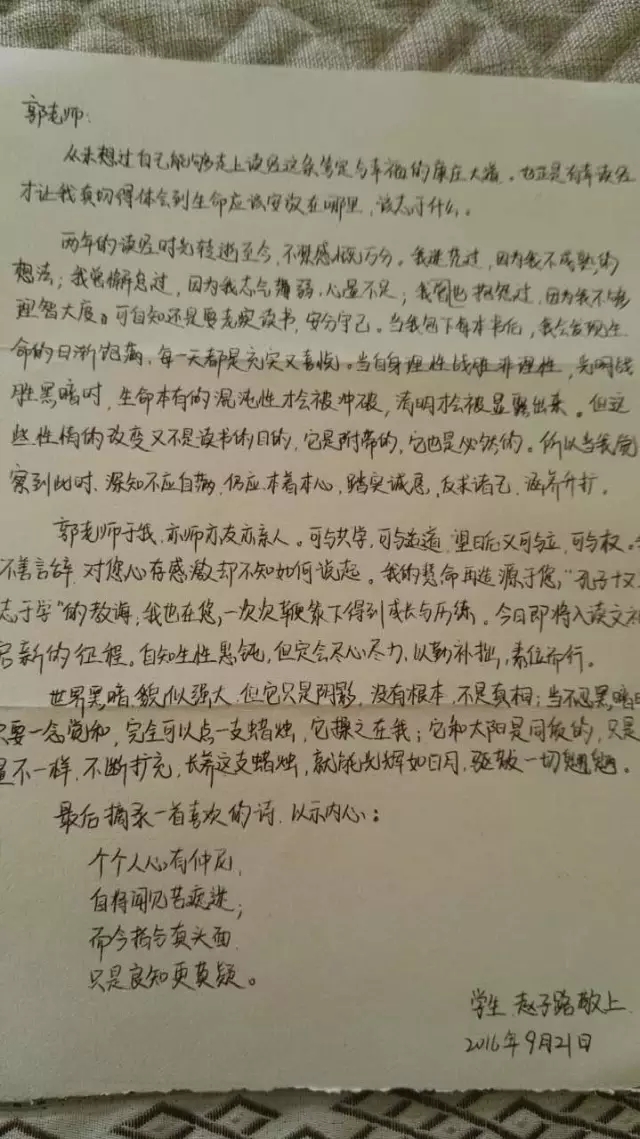 郭老师:
从未想过自己能够走上读经这条笃定与幸福的康庄大道。也正是有幸读经
才让我真的得体会到生命应该安放在哪里,该志于什么。
两年的读经时光转逝至今,不禁感慨万分。我迷茫过,因为我不成熟的
想法;我曾懈怠过,因为我志气薄弱、心量不足;我曾也抱怨过,因为我不够
理智大度。可自知还是要老实读书,安分守己。当我包下每本书后,我会发现生
命的日渐饱满,每一天都是充实又喜悦。当自身理性战胜非理性,光明战
胜黑暗时,生命本有的混沌性才会被冲破,清明才会被显露出来。但这
些性情的改变又不是读书的目的,它是附带的,它也是必然的。所以当我觉
察到此时、深知不应自满,仍应本着本心,踏实诚恳,反求诸己,涵养升扩。
郭老师于我,亦师亦友亦亲人。可与共学,可与适道,望日后又可与立,可与权。
不善言辞,对您心存感激却不知如何说起。我的慧命再造源于您,“孔子十又
志于学”的教诲,我也在您一次次鞭策下得到成长与历练。今日即将入读文礼
启新的征程。自知生性愚钝,但定会尽心尽力,以勤补拙,素位而行。
世界黑暗貌似强大,但它只是阴影,没有根本,不是真相;当不忍黑暗时
只要一念觉知,完全可以点一支蜡烛,它操之在我;它和太阳是同级的,只是
量不一样,不断扩充,长养这支蜡烛,就能光辉如日月,驱散一切魍魉。
最后摘录一首喜欢的诗,以示内心:
个个人心有仲尼,
自将闻见苦疯迷;
而今指与真头面,
只是良知更莫疑。
学生 赵子路敬上
2016年9月21日